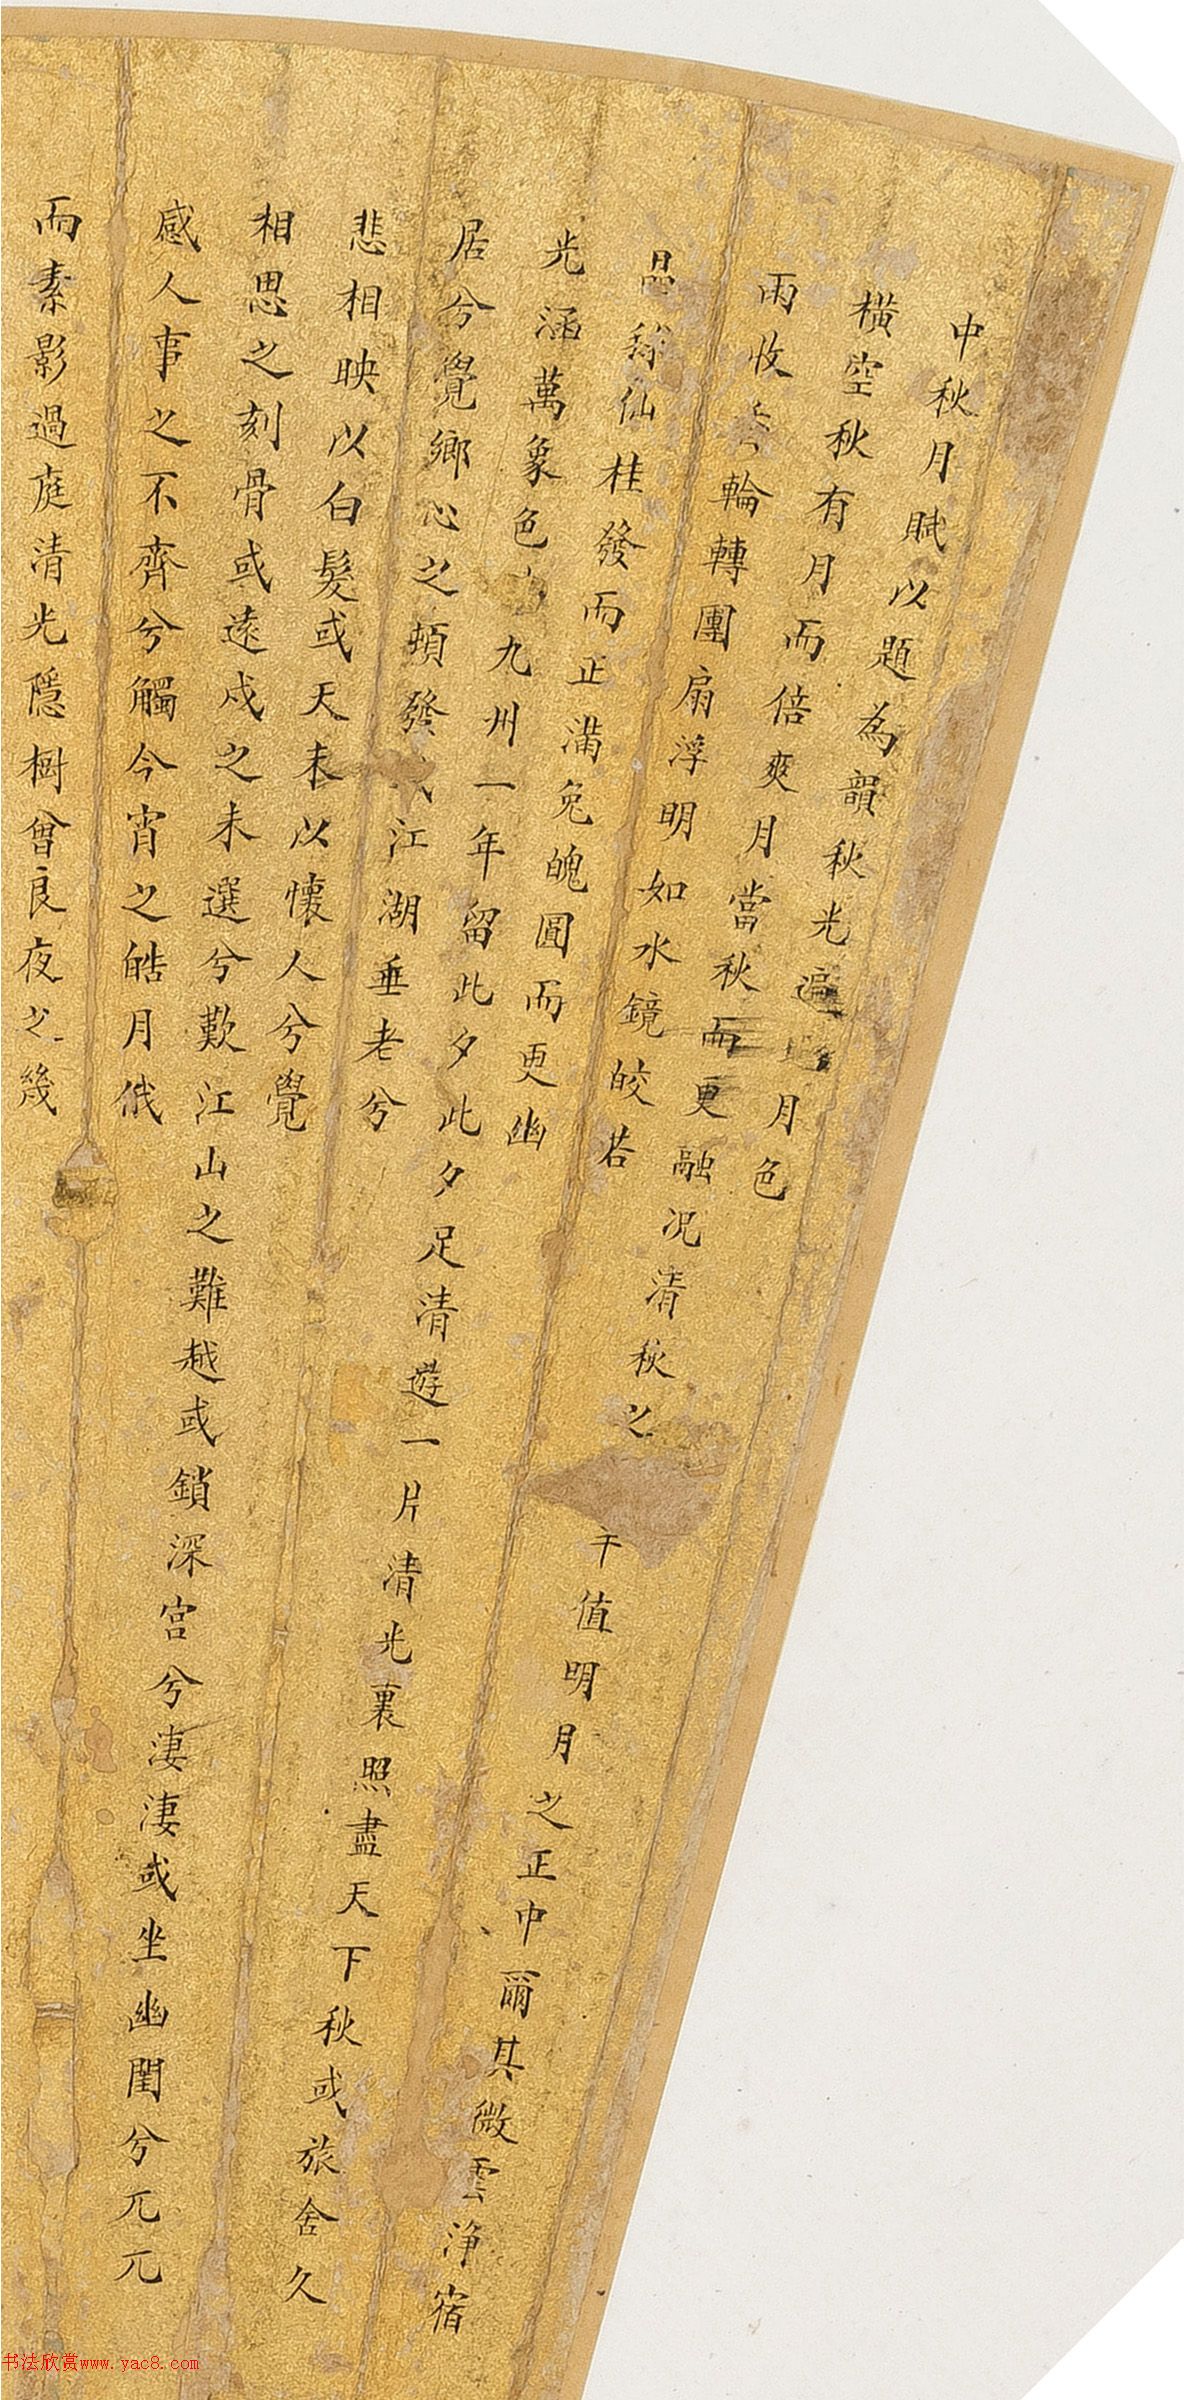 中秋月賦以題為韻秋光遍 月色
橫空秋有月而倍爽月當秋而更融况清秋之 干值明月之正中爾其微雲淨宿
雨收 輪轉團扇浮明如水鏡皎若
晶 仙桂發而正滿兔魄圓而更幽
光涵萬象色 九州一年留此夕此夕足清遊一片清光裏照盡天下秋或旅舍久
居兮覺鄉心之頓發 江湖垂老兮
悲相映以白髮或天末以懷人兮覺
相思之刻骨或遠戍之未選兮歎江山之難越或鎖深宮兮淒淒或坐幽閨兮兀兀
感人事之不齊兮觸今宵之皓月俄
而素影過庭清光隱樹曾良夜之幾
书法欣赏www.yac8.com